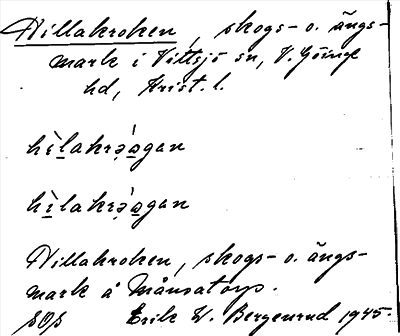 Hillakroken, skogs- o. ängs-
mark i Vittsjö sn, V. Göinge
hd, Krist. l.
hìlakrə́agan
hìlakrə́agan
Hillakroken, skogs- o. ängs-
mark å Månsatorp.
SOS Erik W. Bergenrud 1945.